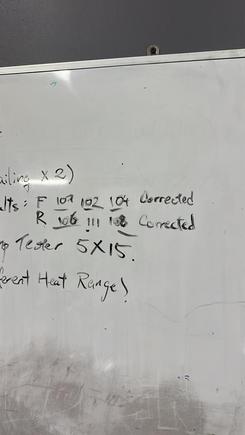 ailing x 2)
lts: F 107 102 104 Corrected
R 106 111 108 Corrected
p Tester 5X15.
ferent Heat Range)